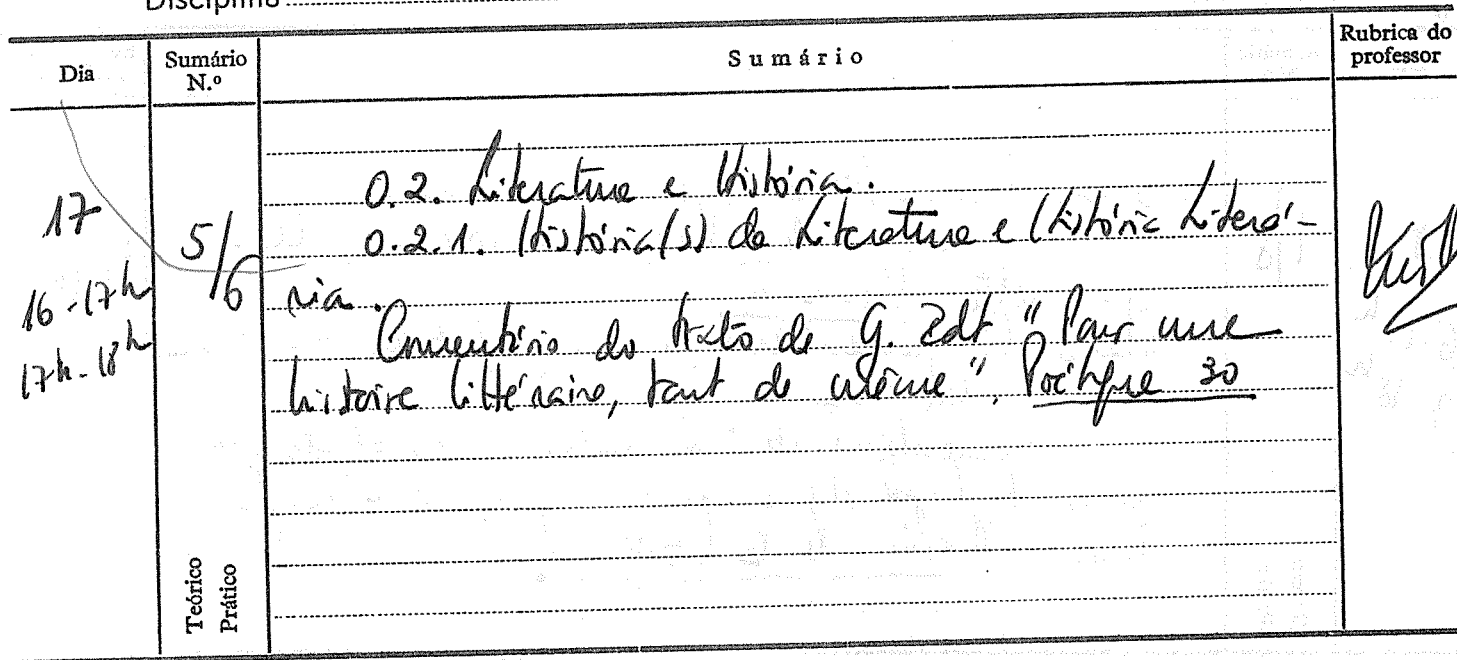 Disciplina
Dia
Sumário N.º
Sumário
Rubrica do professor
17
16-17h
17h-18h
5/6
0.2. Literatura e História.
0.2.1. História(s) da Literatura e História Literá-
ria.
Comentário do texto de G. "Pour une
histoire littéraire, tout de même", Poétique 30
Teórico
Prático